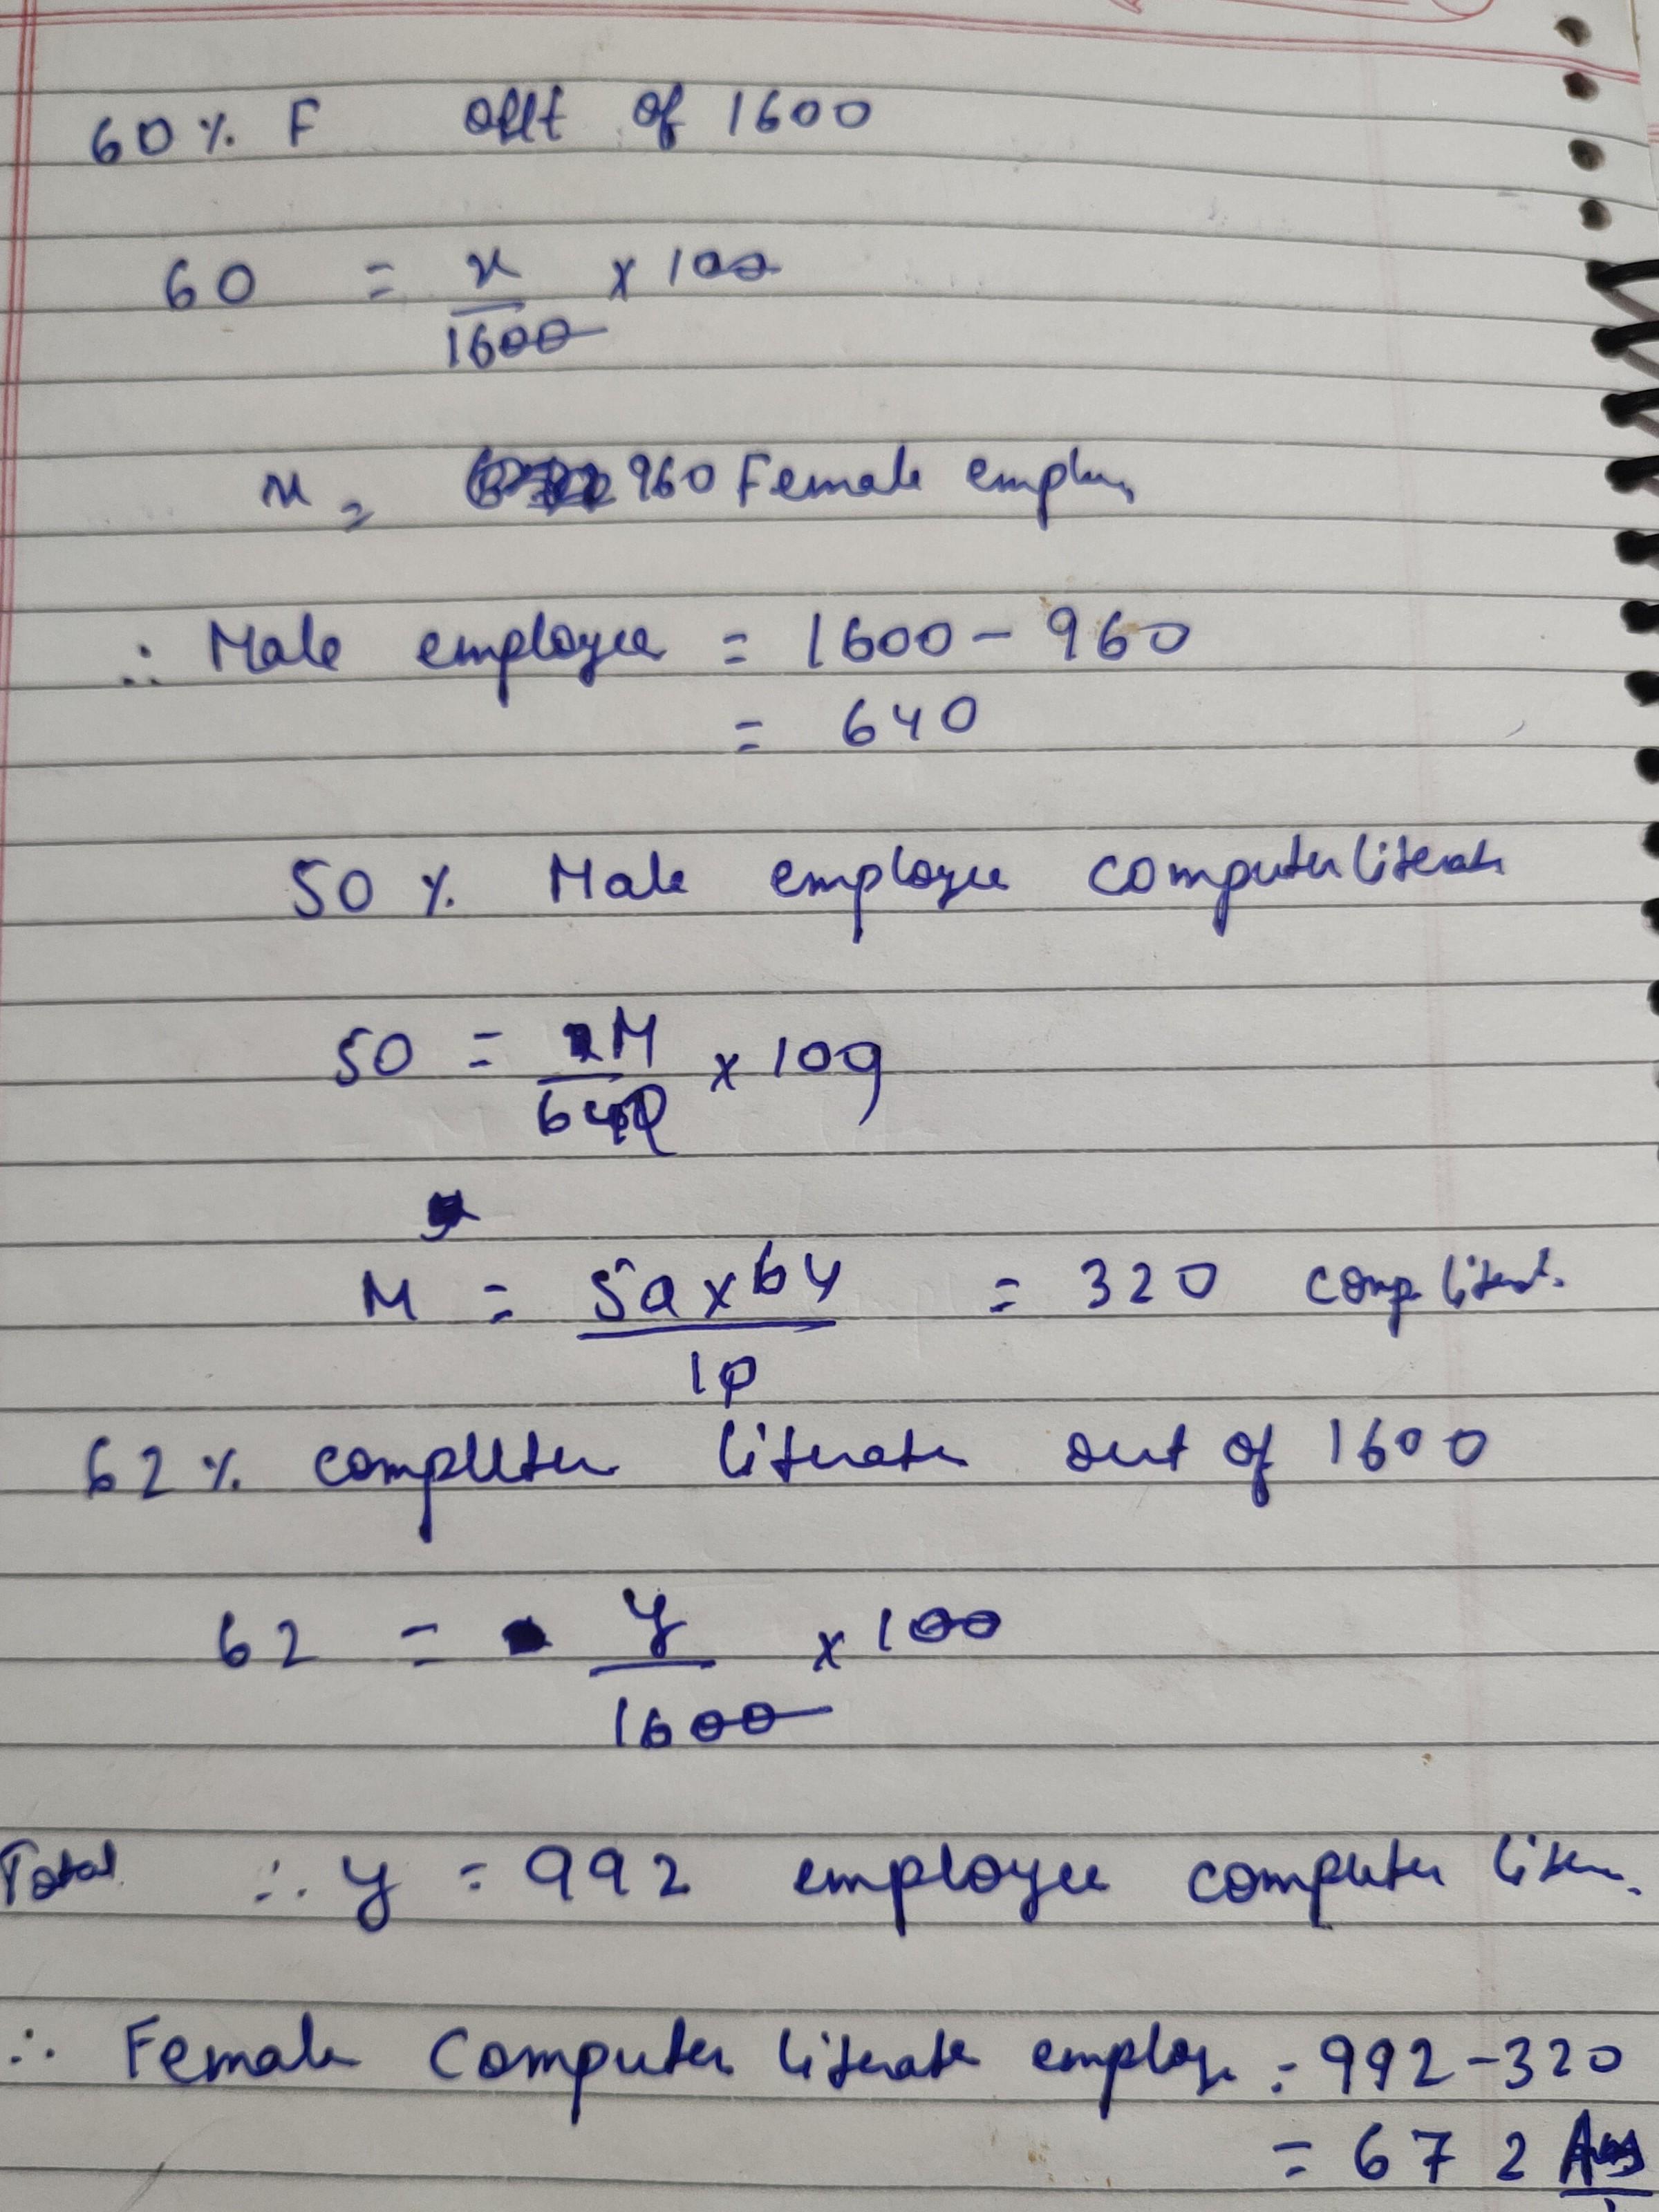 60 % F out of 1600
60 = x/1600 × 100
x = 960 Female employ
∴ Male employee = 1600 - 960
= 640
50 % Male employee computer literate
50 = M/640 × 100
M = 50 × 64 / 10 = 320 comp literat.
62 % computer literate out of 1600
62 = y/1600 × 100
Total ∴ y = 992 employee computer liter.
∴ Female Computer literate employ = 992 - 320
= 672 Ans